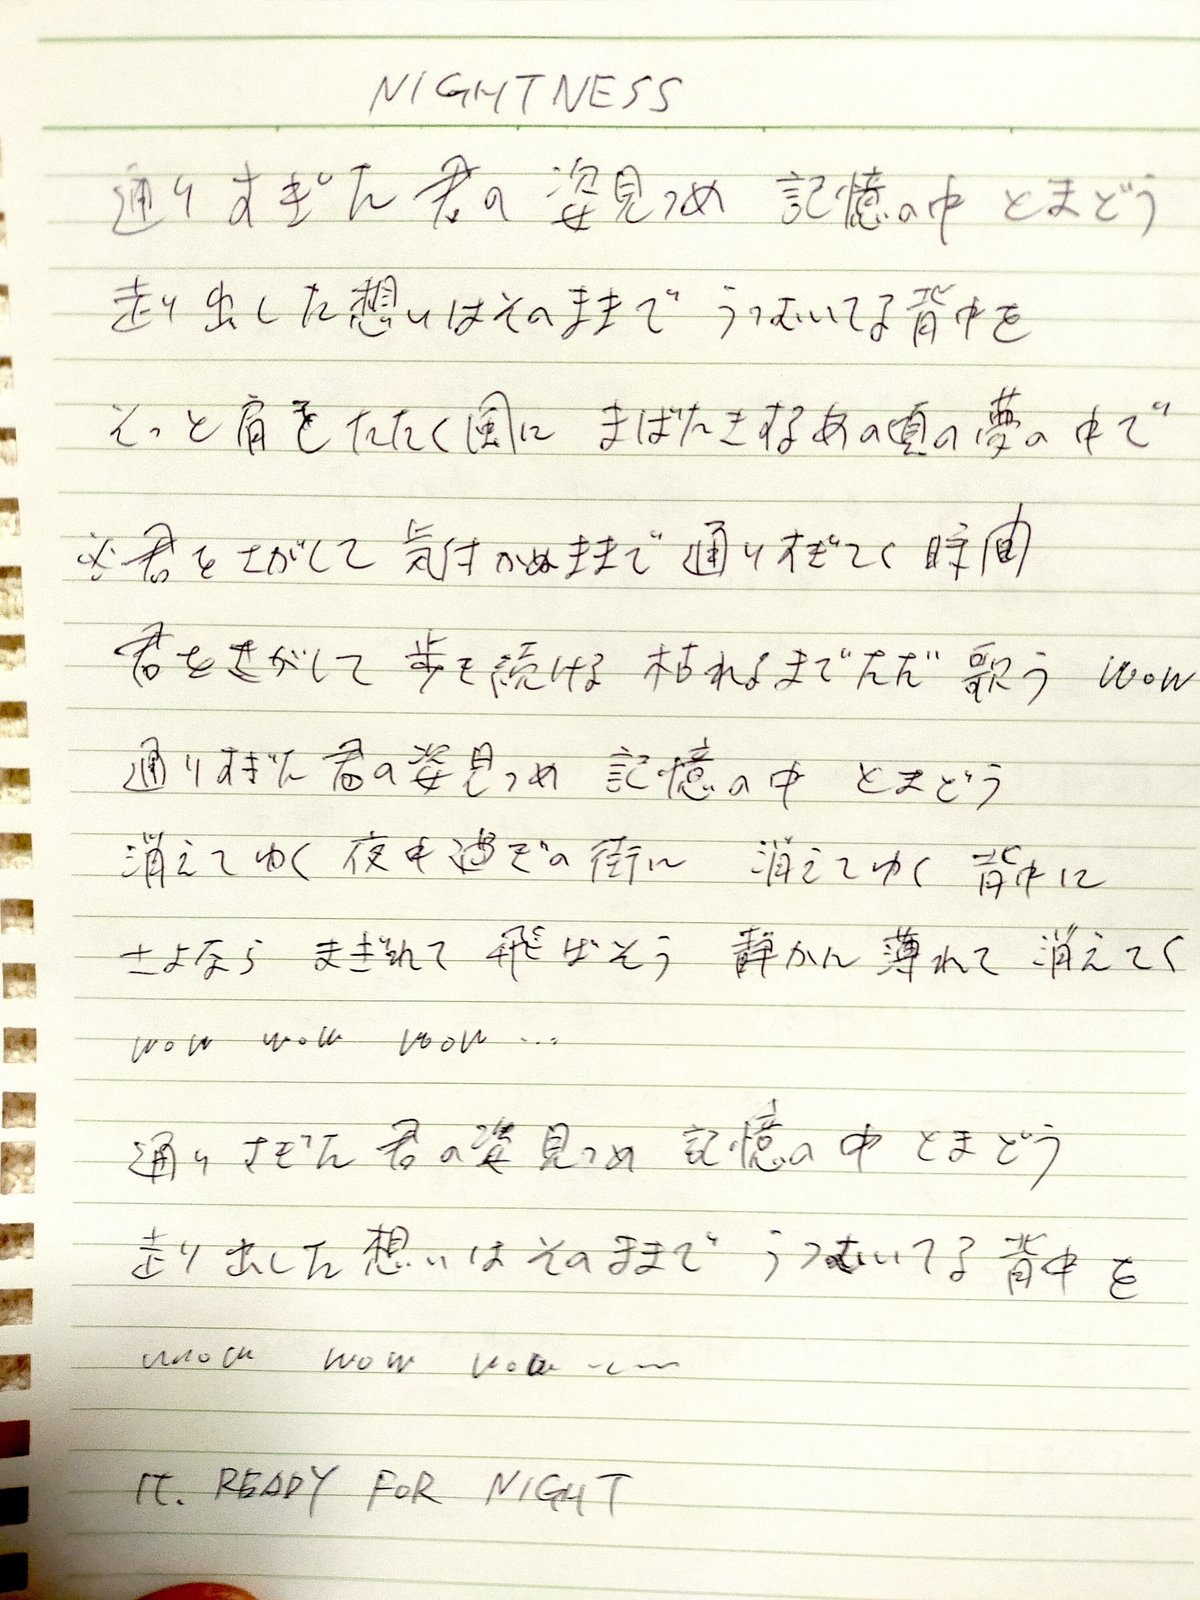 NIGHTNESS
通りすぎた君の姿見つめ 記憶の中 とまどう
走り出した想いはそのままで うつむいてる背中を
そっと肩をたたく風に まばたきするあの頃の夢の中で
※君をさがして 気付かぬままで 通りすぎてく 時間
君をさがして 歩き続ける 枯れるまでただ 歌う wow
通りすぎた君の姿見つめ 記憶の中 とまどう
消えてゆく 夜中過ぎの街に 消えてゆく 背中に
さよなら まぎれて 飛ばそう 静かに 薄れて 消えてく
wow wow wow…
通りすぎた君の姿見つめ 記憶の中 とまどう
走り出した想いはそのままで うつむいてる背中を
wow wow
READY FOR NIGHT